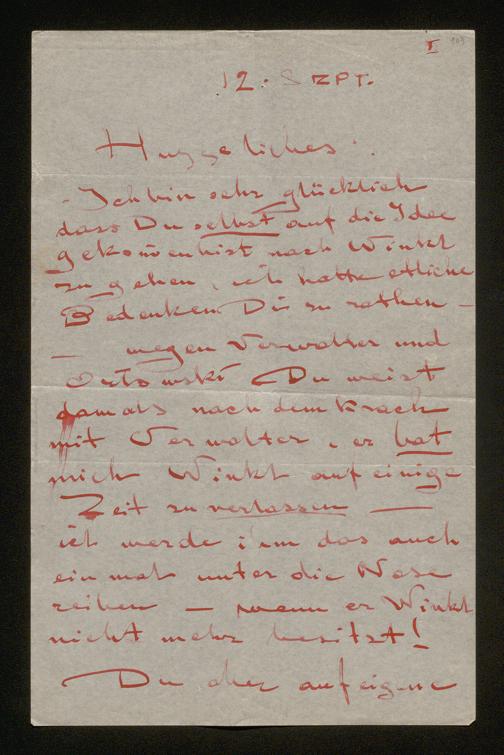 I 
12. SEPT.
Huggeliches
- Ich bin sehr glücklich
dass Du selbst auf die Idee
gekom̄en bist nach Winkl
zu gehen, ich hatte etliche
Bedenken Dir zu rathen –
– wegen Verwalter und
Du weist
damals nach dem Krach
mit Verwalter, er bat
mich Winkl auf einige
Zeit zu verlassen —
ich werde i'em das auch
ein mal unter die Nase
reiben – wenn er Winkl
nicht mehr besitzt!
Du aber auf eigene